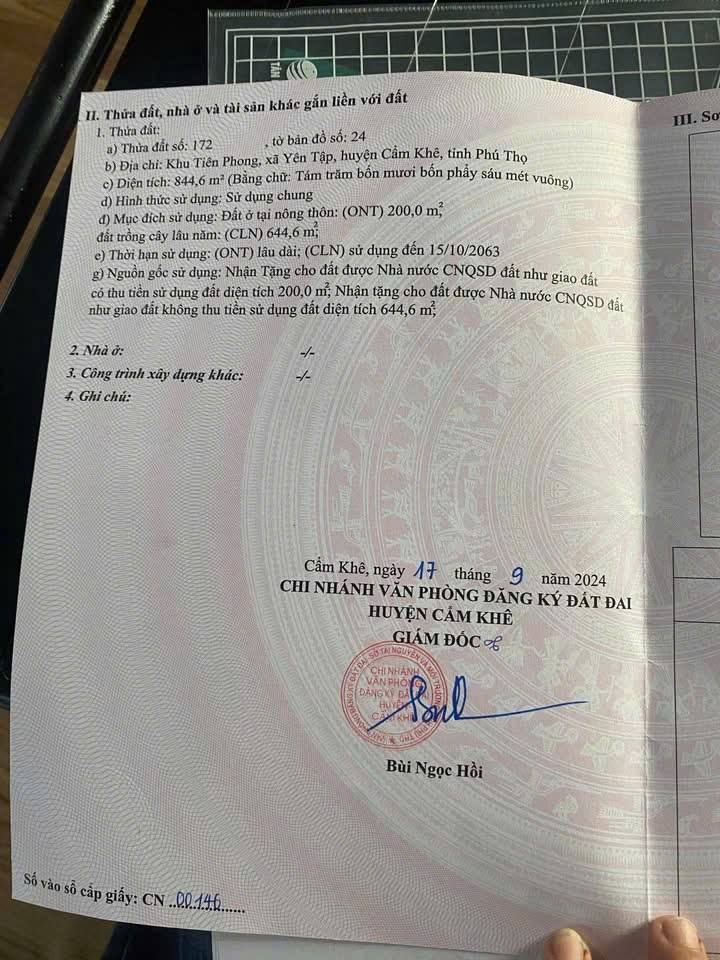 TÂN
II. Thửa đất, nhà ở và tài sản khác gắn liền với đất
III. Sơ
1. Thửa đất:
a) Thửa đất số: 172 , tờ bản đồ số: 24
b) Địa chỉ: Khu Tiên Phong, xã Yên Tập, huyện Cẩm Khê, tỉnh Phú Thọ
c) Diện tích: 844,6 m² (Bằng chữ: Tám trăm bốn mươi bốn phẩy sáu mét vuông)
d) Hình thức sử dụng: Sử dụng chung
đ) Mục đích sử dụng: Đất ở tại nông thôn: (ONT) 200,0 m²,
đất trồng cây lâu năm: (CLN) 644,6 m²;
e) Thời hạn sử dụng: (ONT) lâu dài; (CLN) sử dụng đến 15/10/2063
g) Nguồn gốc sử dụng: Nhận Tặng cho đất được Nhà nước CNQSD đất như giao đất
có thu tiền sử dụng đất diện tích 200,0 m²; Nhận tặng cho đất được Nhà nước CNQSD đất
như giao đất không thu tiền sử dụng đất diện tích 644,6 m²;
2. Nhà ở: -/-
3. Công trình xây dựng khác: -/-
4. Ghi chú:
Cẩm Khê, ngày 17 tháng 9 năm 2024
CHI NHÁNH VĂN PHÒNG ĐĂNG KÝ ĐẤT ĐAI
HUYỆN CẨM KHÊ
GIÁM ĐỐC
CHI NHÁNH
VĂN PHÒNG
ĐĂNG KÝ ĐẤT ĐAI
HUYỆN
CẨM KHÊ
Bùi Ngọc Hồi
Số vào sổ cấp giấy: CN ..00146......